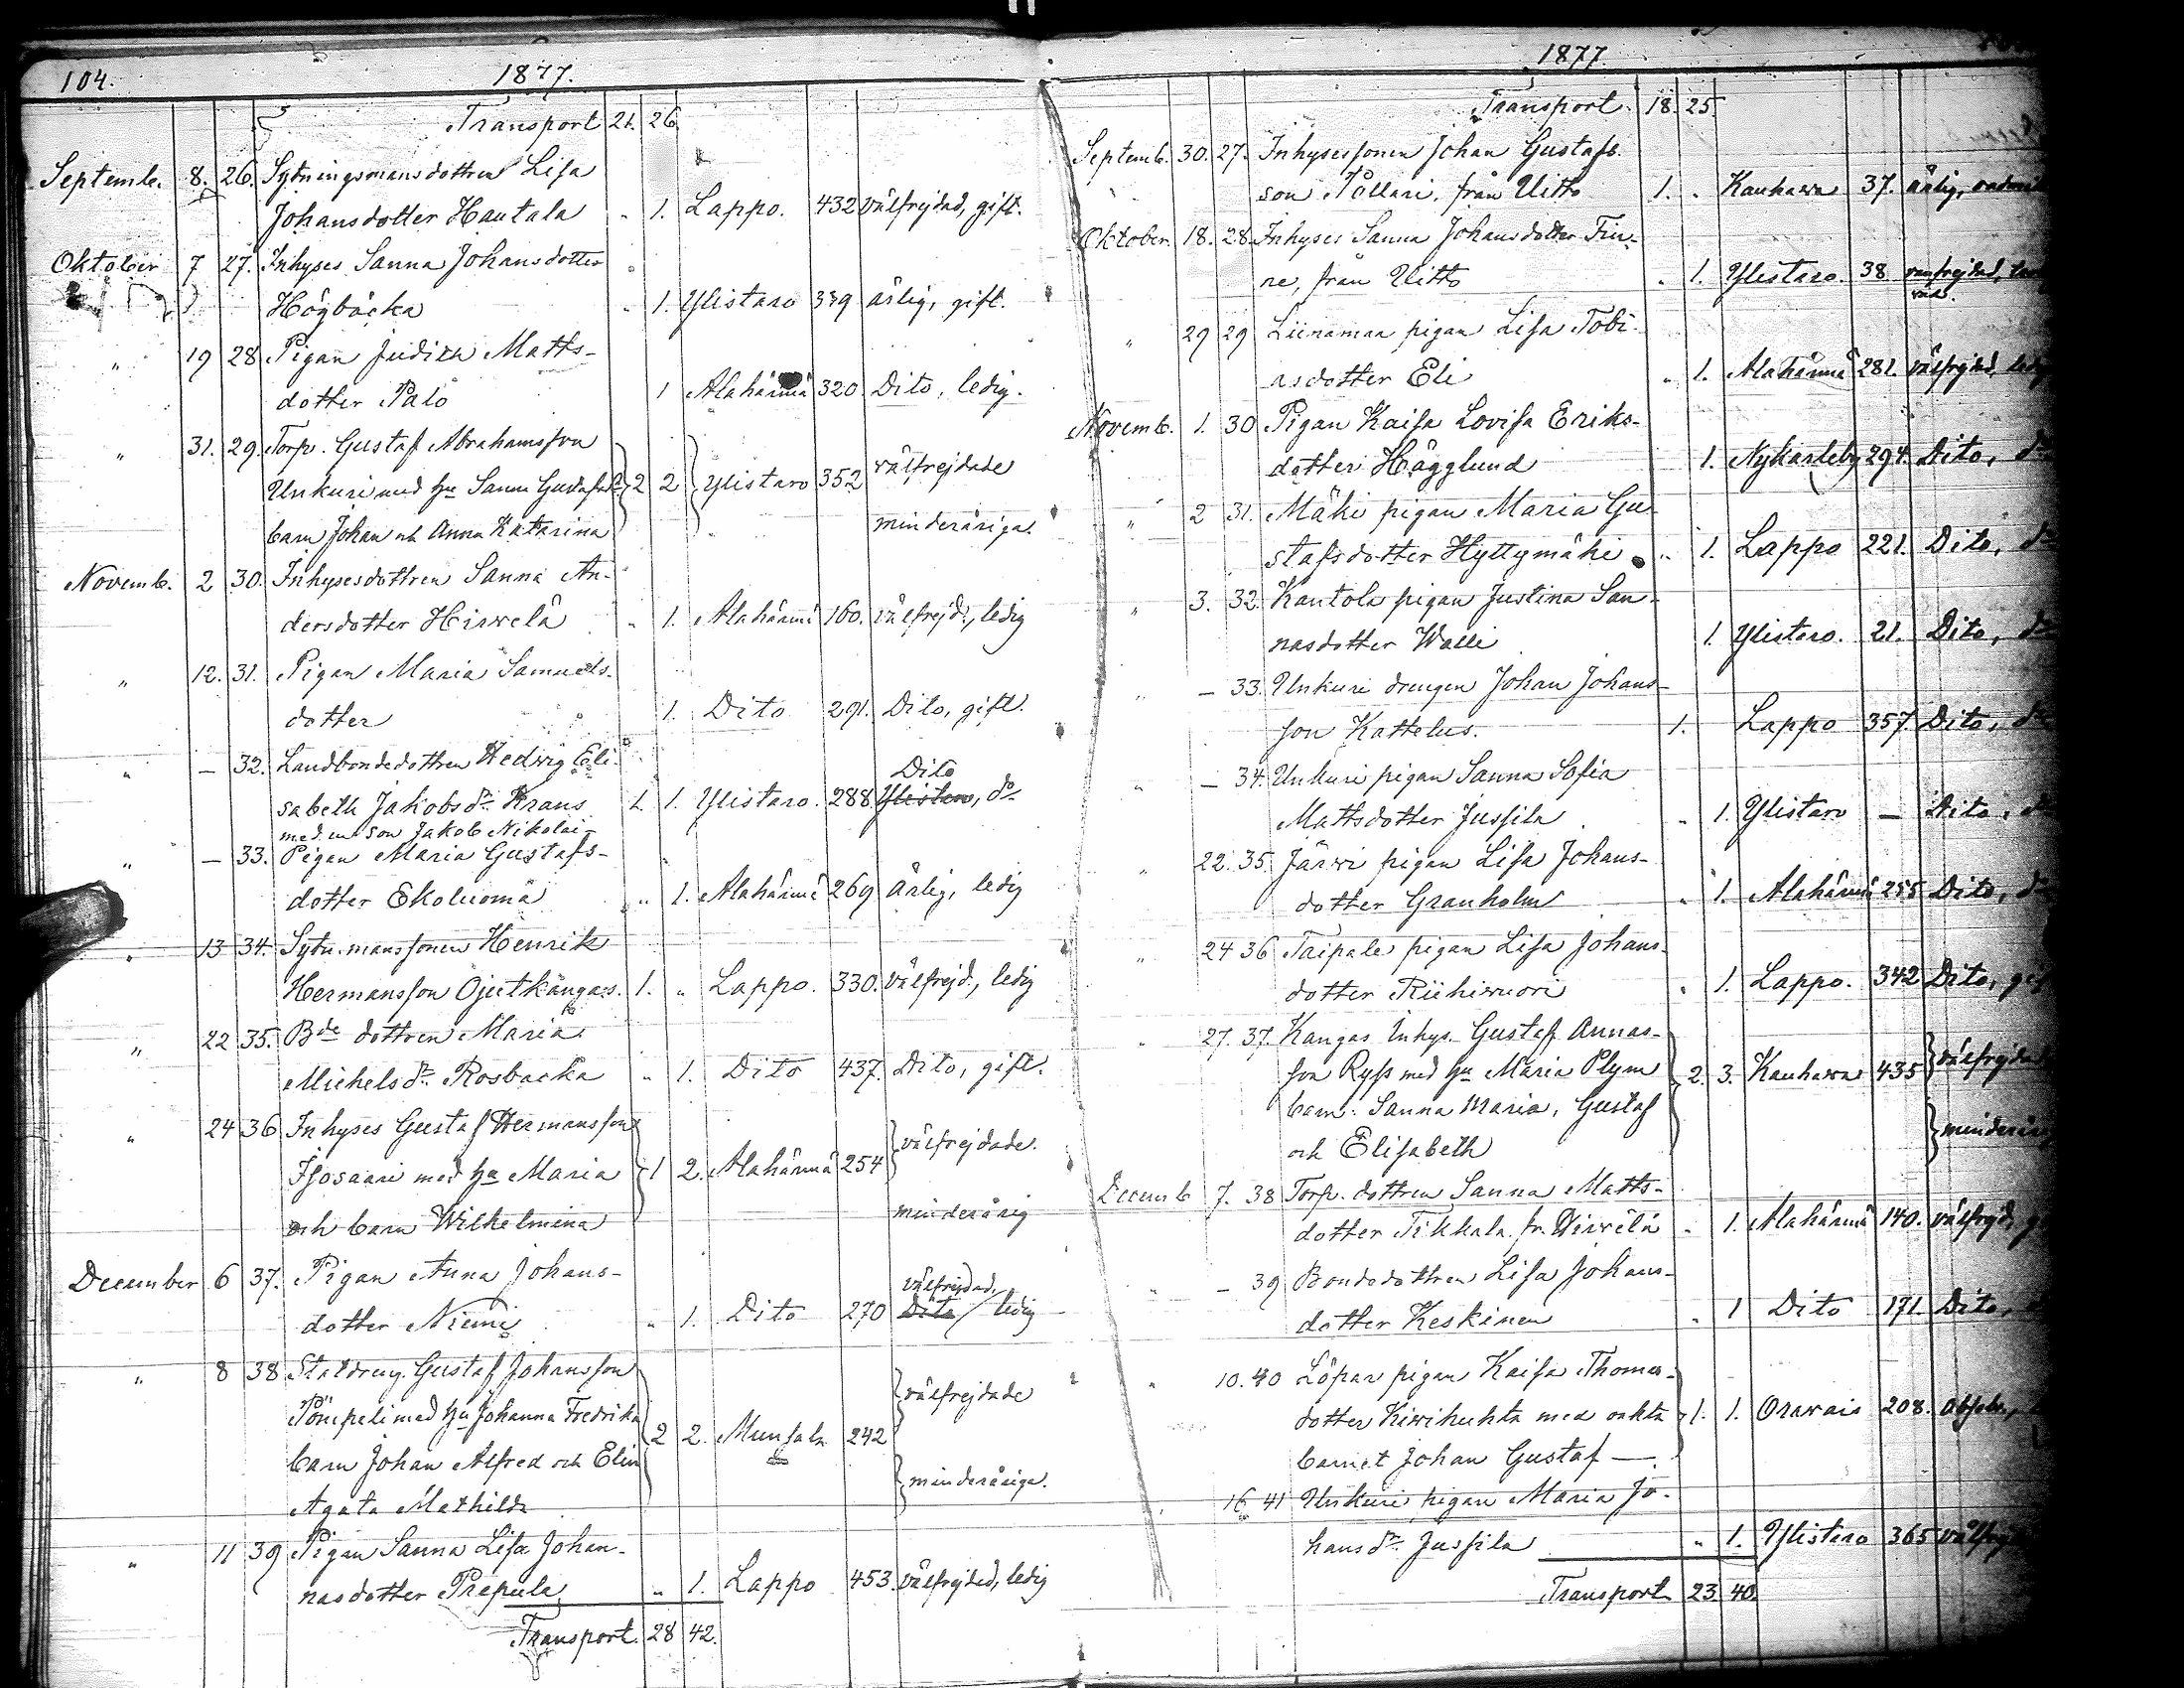 104. 1877.
Transport 21. 26.
Septemb. 8. 26. Sytningsmansdottren Lisa
Johansdotter Hautala " 1. Lappo. 432 välfrejdad, gift.
Oktober 7 27. Inhyses Sanna Johansdotter
Högbacka " 1. Ylistaro 339 ärlig, gift.
" 19 28 Pigan Judith Matts-
dotter Palo 1 Alahärmä 320. Dito, ledig.
" 31. 29. Torp. Gustaf Abrahamsson
Unkuri med hu Sanna 2 2 Ylistaro 352 välfrejdade
barn Johan och Anna Katarina minderåriga.
Novemb. 2 30. Inhysesdottren Sanna An-
dersdotter Hirvelä " 1. Alahärmä 160. välfrejd., ledig
" 12. 31. Pigan Maria Samuels-
dotter 1. Dito 291. Dito, gift.
" — 32. Landbondedottren Hedvig Eli-
sabeth Jakobsdr Krans 1. 1. Ylistaro. 288 Dito, do
med en son Jakob Nikolai-
" — 33. Pigan Maria Gustafs-
dotter Ekoluoma " 1. Alahärmä 269 ärlig, ledig
" 13 34. Sytn.manssonen Henrik
Hermansson Ojutkangas. 1. " Lappo. 330. välfrejd., ledig
" 22 35. Bde dottren Maria
Michelsdr. Rosbacka " 1. Dito 437. Dito, gift.
" 24 36 Inhyses Gustaf Hermansson
Isosaari med hu Maria 1 2. Alahärmä 254 välfrejdade.
och barn Wilhelmina minderårig
December 6 37. Pigan Anna Johans-
dotter Niemi " 1. Dito 270 välfrejdad, ledig
" 8 38 Statdreng. Gustaf Johansson
Pömpeli med hu Johanna Fredrika 2 2. Munsala 242 välfrejdade
barn Johan Alfred och Elin minderåriga.
Agata Mathilda
" 11 39 Pigan Sanna Lisa Johan-
nasdotter Prepula " 1. Lappo 453. välfrejdad, ledig
Transport. 28 42.
1877.
Transport. 18. 25.
Septemb. 30. 27. Inhysessonen Johan Gustafs-
son Pollari, från Uitto 1. " Kauhava 37. ärlig,
Oktober. 18. 28. Inhyses Sanna Johansdotter Fin-
ne, från Uitto " 1. Ylistaro. 38.
" 29 29 Liinamaa pigan Lisa Tobi-
asdotter Eli " 1. Alahärmä 281. välfrejdad,
Novemb. 1. 30 Pigan Kaisa Lovisa Eriks-
dotter Hägglund 1. Nykarleby 294. Dito,
" 2 31. Mäki pigan Maria Gu-
stafsdotter Hyttymäki " 1. Lappo 221. Dito,
" 3. 32. Kantola pigan Justina San-
nasdotter Walli 1. Ylistaro. 21. Dito,
" — 33. Unkuri drengen Johan Johans-
son Kattelus. 1. Lappo 357. Dito,
" — 34. Unkuri pigan Sanna Sofia
Mattsdotter Jussila " 1. Ylistaro — Dito,
" 22. 35. Järvi pigan Lisa Johans-
dotter Granholm " 1. Alahärmä 255 Dito,
" 24 36 Taipale pigan Lisa Johans-
dotter Riihivuori " 1. Lappo. 342 Dito,
" 27. 37. Kangas Inhys. Gustaf Annas-
son Ryss med hu Maria Plym 2. 3. Kauhava 435
barn: Sanna Maria, Gustaf
och Elisabeth
Decemb 7. 38 Torp. dottren Sanna Matts-
dotter Tikkala fr. Hirvelä " 1. Alahärmä 140.
" — 39 Bondedottren Lisa Johans-
dotter Keskinen " 1 Dito 171. Dito,
" 10. 40 Löpar pigan Kaisa Thomas-
dotter Kivihuhta med oäkta 1. 1. Oravais 208.
barnet Johan Gustaf —.
16 41 Unkuri pigan Maria Jo-
hansdr. Jussila " 1. Ylistaro 365
Transport 23. 40.